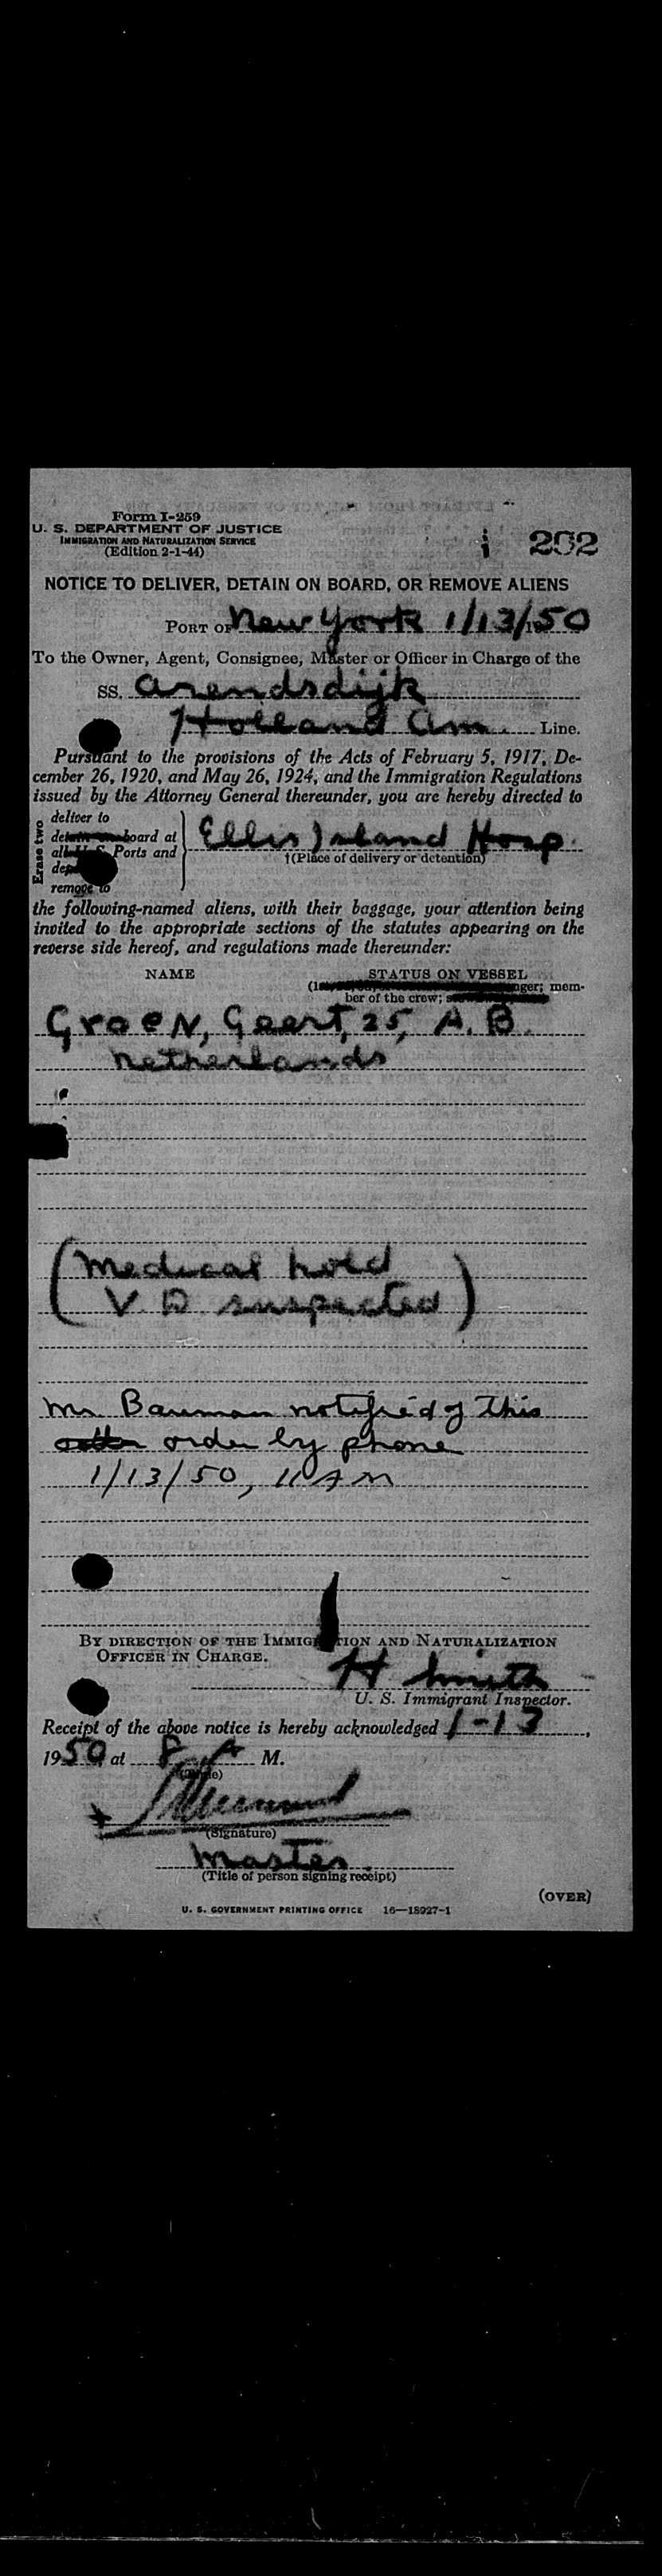 Form I-259
U. S. DEPARTMENT OF JUSTICE
IMMIGRATION AND NATURALIZATION SERVICE
(Edition 2-1-44)
i 292
NOTICE TO DELIVER, DETAIN ON BOARD, OR REMOVE ALIENS
PORT OF New York 1/13/1950
To the Owner, Agent, Consignee, Master or Officer in Charge of the
SS. Arendsdijk
Holland Am. Line.
Pursuant to the provisions of the Acts of February 5, 1917, De-
cember 26, 1920, and May 26, 1924, and the Immigration Regulations
issued by the Attorney General thereunder, you are hereby directed to
Erase two
deliver to
board at
Ports and
remove to
Ellis Island Hosp.
†(Place of delivery or detention)
the following-named aliens, with their baggage, your attention being
invited to the appropriate sections of the statutes appearing on the
reverse side hereof, and regulations made thereunder:
NAME STATUS ON VESSEL
mem-
ber of the crew;
Groen, Geert, 25, A. B.
Netherlands
(Medical hold
V. D. suspected)
Mr. Bauman notified of this
order by phone
1/13/50, 11 AM
BY DIRECTION OF THE IMMIGRATION AND NATURALIZATION
OFFICER IN CHARGE.
H Smith
U. S. Immigrant Inspector.
Receipt of the above notice is hereby acknowledged 1-13,
1950, at 8 A M.
(Signature)
Master
(Title of person signing receipt)
(OVER)
U. S. GOVERNMENT PRINTING OFFICE 16—18927-1